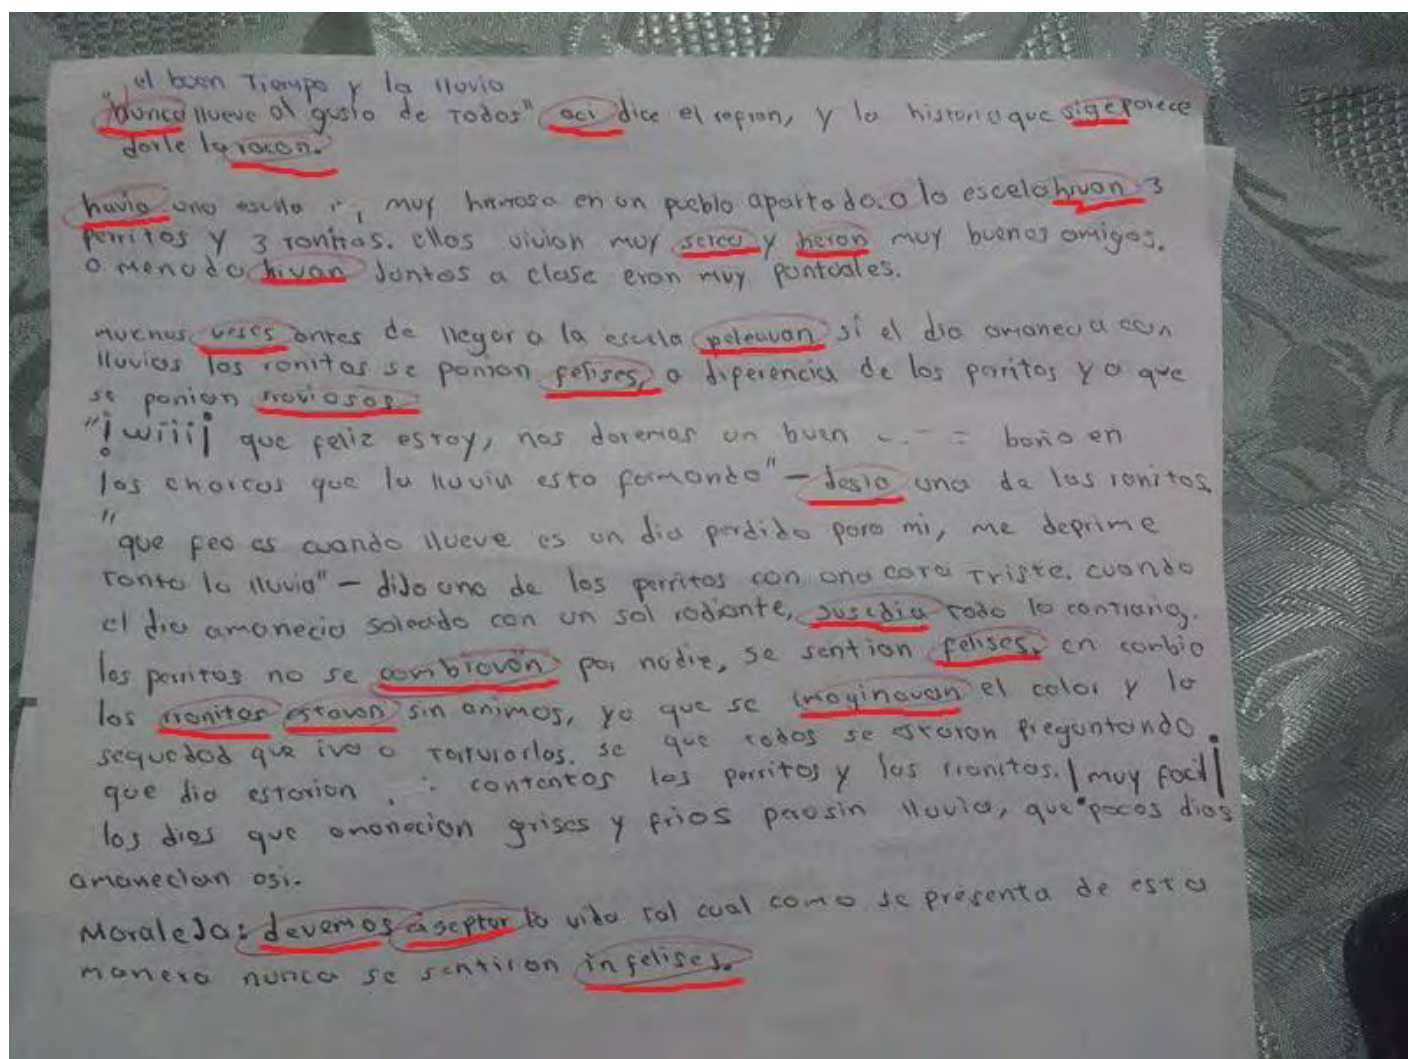 el buen Tiempo y la lluvia
"Nunca llueve al gusto de Todos" aci dice el refran, y la historia que sige parece
darle la racon.
havia una escula muy hermosa en un pueblo apartado. a la escela hivan 3
perritos y 3 ranitas. ellos vivian muy serca y heran muy buenos amigos.
a menudo hivan Juntos a clase eran muy puntuales.
muchas veses antes de llegar a la escula peleavan si el dia amanecia con
lluvias las ranitas se ponian felises, a diferencia de los perritos ya que
se ponian rraviosos.
"¡wiii¡ que feliz estoy, nos daremos un buen baño en
los charcos que la lluvia esta formando" - desia una de las ranitas.
"que feo es cuando llueve es un dia perdido para mi, me deprime
tanto la lluvia" - dijo uno de los perritos con una cara Triste. cuando
el dia amanecia soleado con un sol radiante, susedia todo lo contrario,
los perritos no se cambiavan por nadie, se sentian felises, en cambio
las rranitas estavan sin animos, ya que se imaginavan el calor y la
sequedad que iva a torturarlas. se que todos se estaran preguntando
que dia estarian contentos los perritos y las rranitas. ¡muy facil¡
los dias que amanecian grises y frios pero sin lluvia, que pocos dias
amanecian asi.
MoraleJa: devemos aseptar la vida tal cual como se presenta de esta
manera nunca se sentiran infelises.